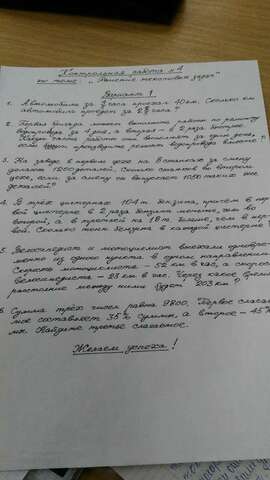 Контрольная работа №4
по теме: "Решение текстовых задач"
Вариант 1
1. Автомобиль за часа проехал 40 км. Сколько км
автомобиль пройдёт за 2 часа?
2. Первая бригада может выполнить работы по ремонту
водопровода за 4 дня, а вторая – в 2 раза быстрее.
Какую часть работы они выполнят за один день,
если будут производить ремонт водопровода вместе?
3. На заводе в первом цехе на 8 станках за смену
делают 1200 деталей. Сколько станков во втором
цехе, если за смену он выпускает 1050 таких же
деталей?
4. В трёх цистернах 104 т бензина, причём в пер
вой цистерне в 2 раза бензина меньше, чем во
второй, а в третьей на т больше, чем в пер
вой. Сколько тонн бензина в каждой цистерне?
5. Велосипедист и мотоциклист выехали одновре
менно из одного пункта в одном направлении.
Скорость мотоциклиста – км в час, а скорость
велосипедиста – км в час. Через какое время
расстояние между ними будет 203 км?
6. Сумма трёх чисел равна 9800. Первое слагае
мое составляет 35% суммы, а второе – 45% сум
мы. Найдите третье слагаемое.
Желаем успеха!